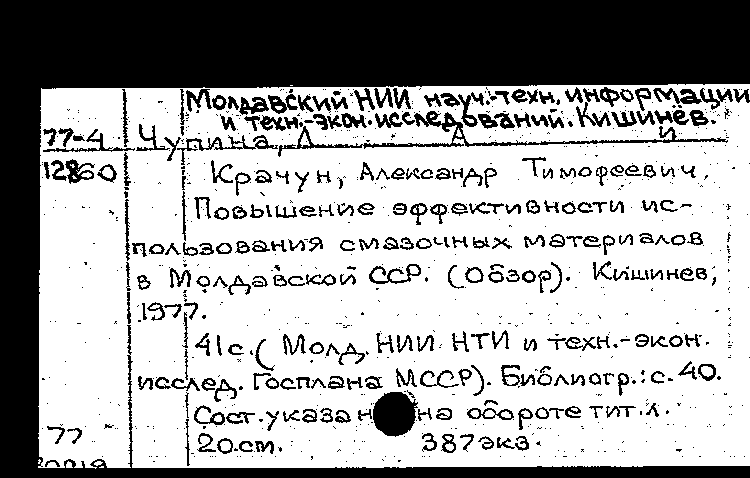 Молдавский НИИ науч.-техн. информации
и техн.-экон. исследований. Кишинев.
77-4 Чупина, Л А и
12860 Крачун, Александр Тимофеевич.
Повышение эффективности ис-
пользования смазочных материалов
в Молдавской ССР. (Обзор). Кишинев,
1977.
41с. (Молд. НИИ НТИ и техн.-экон.
исслед. Госплана МССР). Библиогр.: с. 40.
Сост. указан на обороте тит. л.
77 20.cm. 387экз.